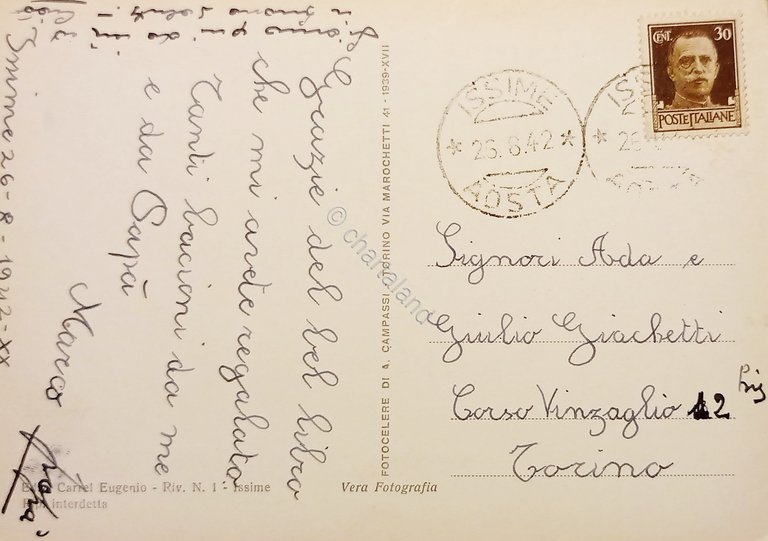 Grazie del bel libro
che mi avete regalato
Tanti bacioni da me
e da Papà
Marco
Papà
Issime 26-8-1942-XX
CENT. 30
POSTE ITALIANE
ISSIME
* 26.8.42 *
AOSTA
Signori Ada e
Giulio Giachetti
Corso Vinzaglio 12 bis
Torino
FOTOCELERE DI A. CAMPASSI TORINO VIA MAROCHETTI 41 - 1939-XVII
Carrel Eugenio - Riv. N. 1 - Issime
Rip. interdetta
Vera Fotografia
© chartaland